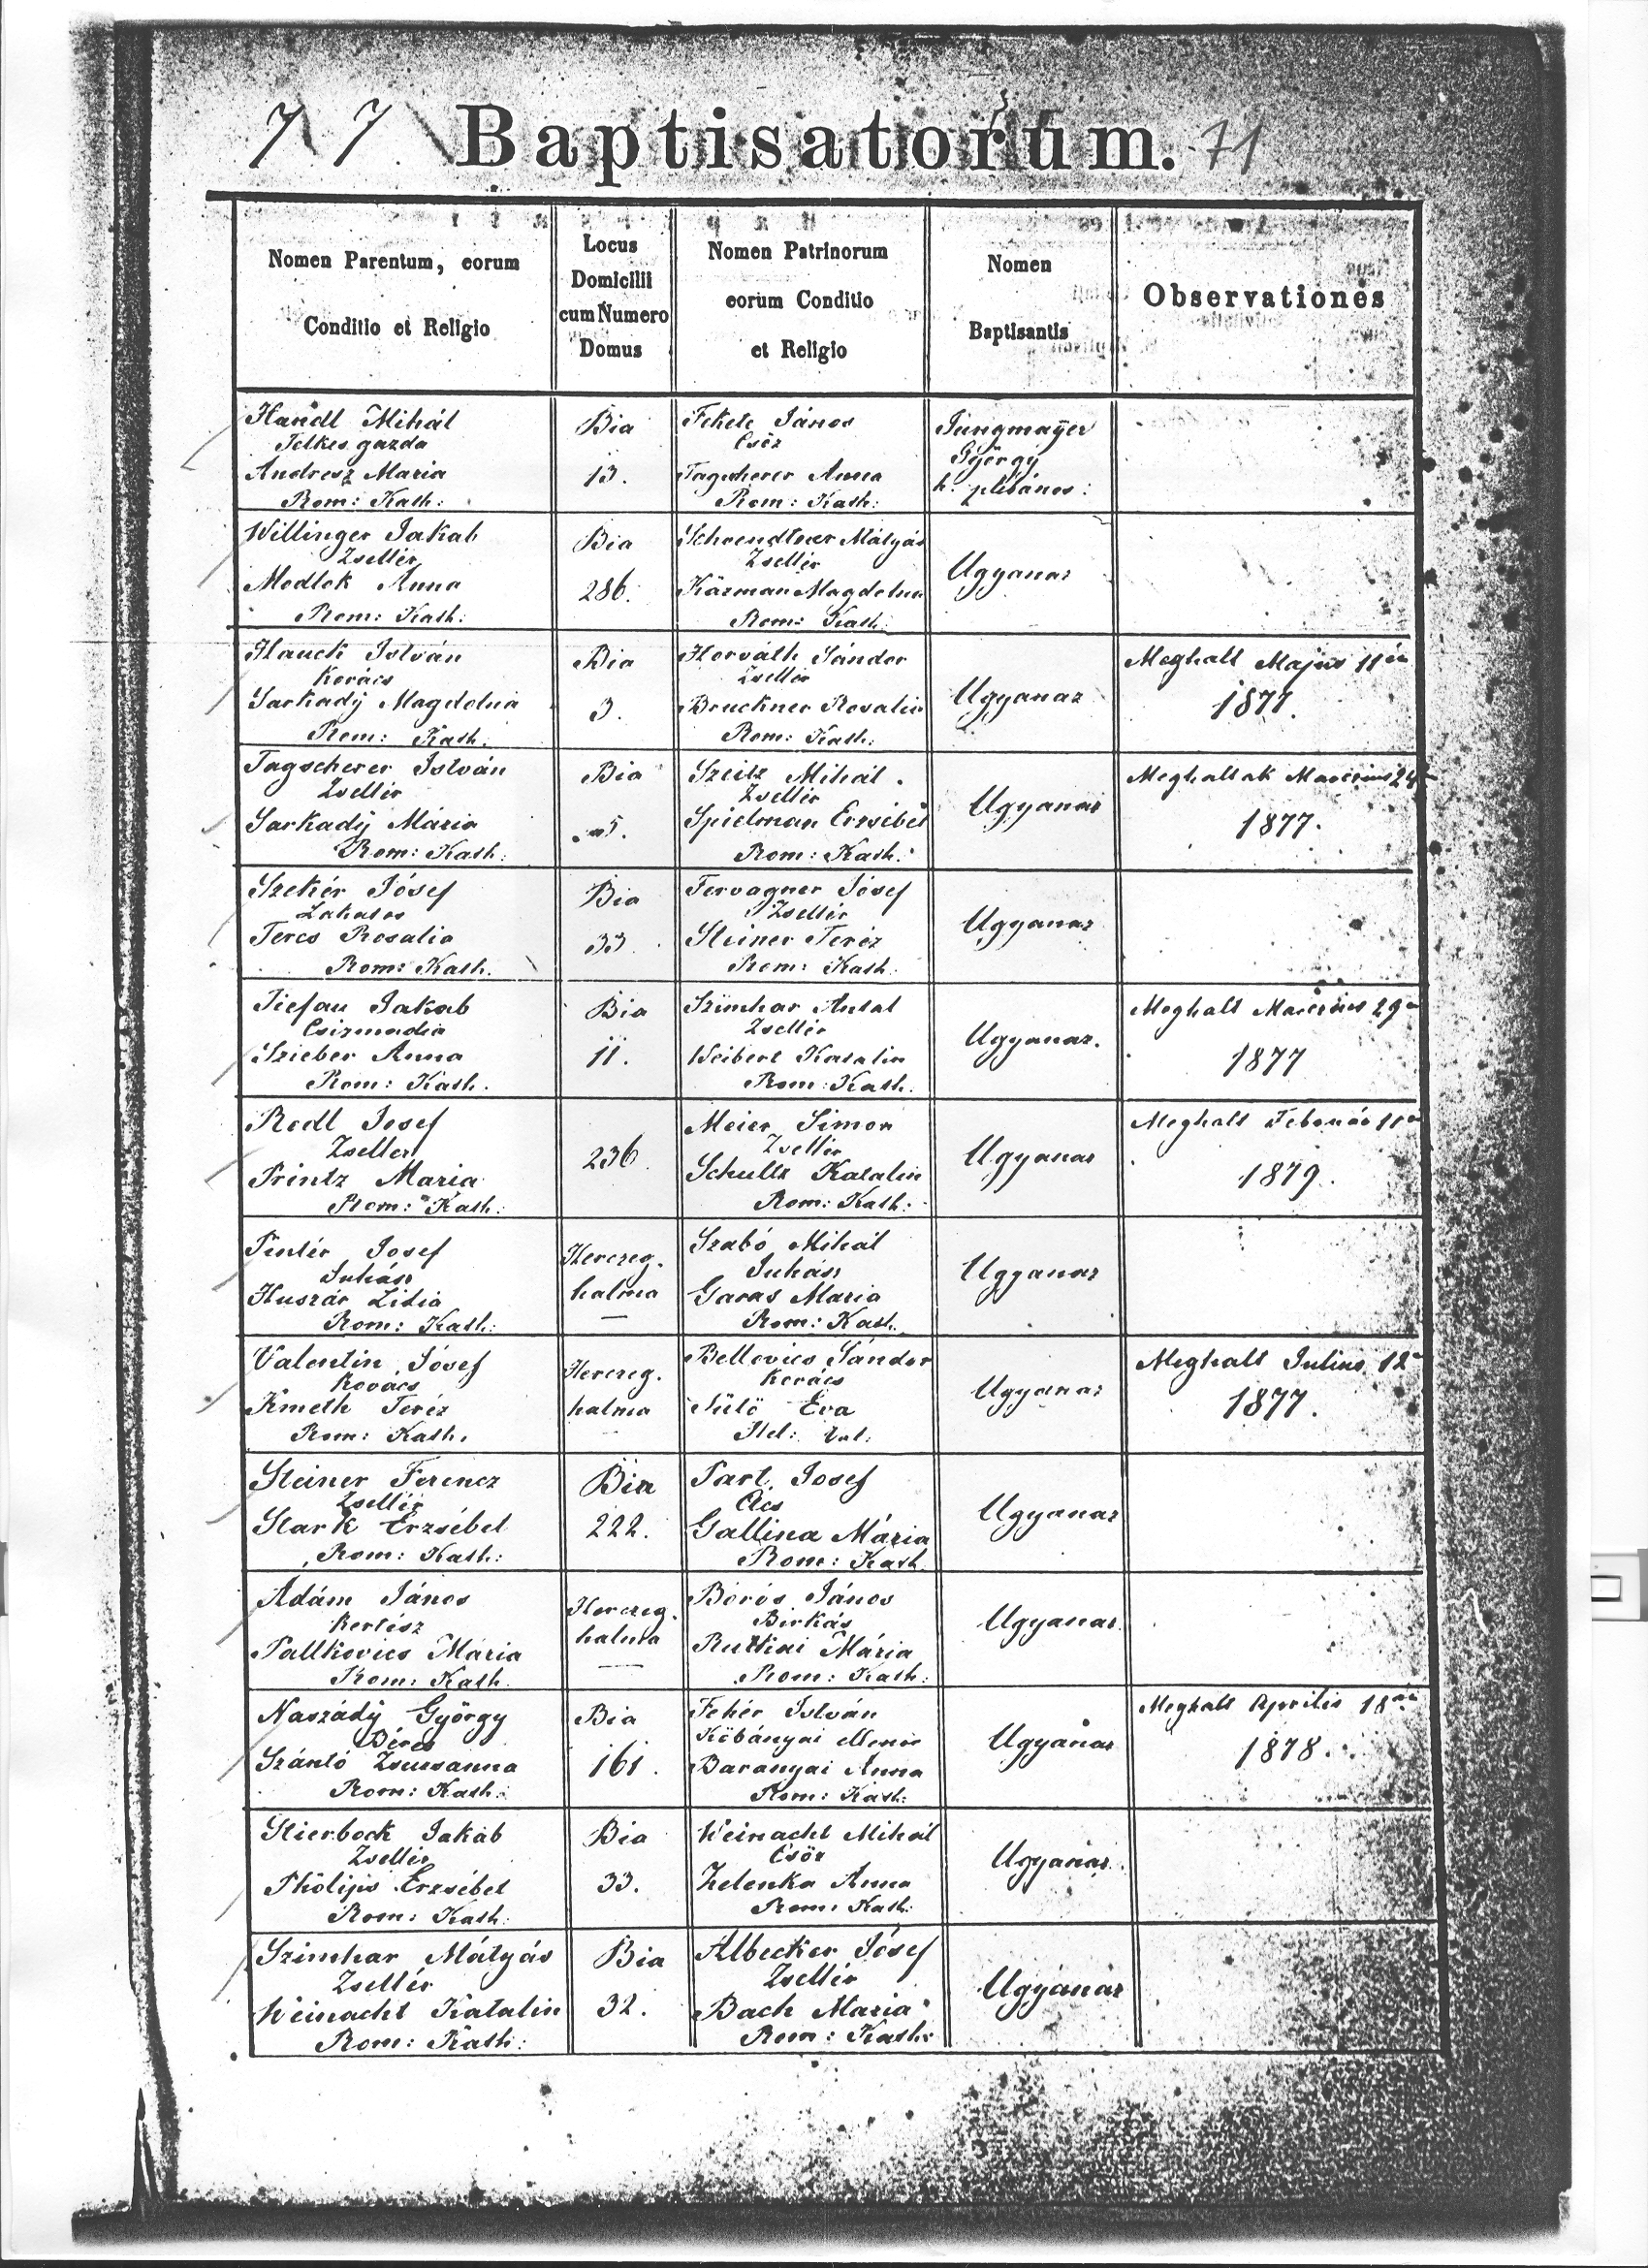 77 Baptisatorum. 71
Nomen Parentum, eorum
Conditio et Religio
Locus
Domicilii
cum Numero
Domus
Nomen Patrinorum
eorum Conditio
et Religio
Nomen
Baptisantis
Observationes
Handl Mihál
Telkes gazda
Andresz Maria
Rom: Kath:
Bia
13.
Fekete János
Csőz
Tagscherer Anna
Rom: Kath:
Jungmayer
György
h. plébános:
Willinger Jakab
Zsellér
Medlek Anna
Rom: Kath:
Bia
286.
Mátyás
Zsellér
Kázman Magdolna
Rom: Kath:
Ugyanaz
Hauck István
Kovács
Sarkady Magdolna
Rom: Kath:
Bia
3.
Horváth Sándor
Zsellér
Bruckner Rosalia
Rom: Kath:
Ugyanaz
Meghalt Majus 11én
1877.
Tagscherer István
Zsellér
Sarkady Mária
Rom: Kath:
Bia
5.
Szeitz Mihál.
Zsellér
Spielman Erzsébet
Rom: Kath:
Ugyanaz
Meghaltak Marcius
1877.
Szekér Jósef
Lakatos
Teres Rosalia
Rom: Kath.
Bia
33.
Fervagner Jósef
Zsellér
Steiner Teréz
Rom: Kath:
Ugyanaz
Tiefau Jakab
Csizmadia
Szieber Anna
Rom: Kath.
Bia
11.
Szimhar Antal
Zsellér
Weibert Katalin
Rom: Kath:
Ugyanaz.
Meghalt Marcius 29
1877
Redl Josef
Zseller
Printz Maria
Rom: Kath:
236.
Meier Simon
Zsellér
Schultz Katalin
Rom: Kath:
Ugyanaz
Meghalt Február 11
1879.
Pintér Josef
Juhász
Huszár Lidia
Rom: Kath:
Herczeg.
halma
—
Szabó Mihál
Juhász
Garas Maria
Rom: Kath.
Ugyanaz
Valentin Jósef
Kovács
Kmeth Teréz
Rom: Kath.
Herczeg.
halma
Bellovics Sándor
Kovács
Sülö Éva
Hel: Val:
Ugyanaz
Meghalt Julius 12
1877.
Steiner Ferencz
Zsellér
Stark Erzsébet
Rom: Kath:
Bia
222.
Part Josef
Ács
Gallina Mária
Rom: Kath.
Ugyanaz
Ádám János
Kertész
Pallkovics Mária
Rom: Kath.
Herczeg.
halma
—
Borós János
Birkás
Ruttkai Mária
Rom: Kath:
Ugyanaz.
Naszády György
Béres
Szántó Zsuzsanna
Rom: Kath:
Bia
161.
Fehér István
Kőbányai
Baranyai Anna
Rom: Kath:
Ugyanaz
Meghalt Aprilis 18án
1878.
Stierbock Jakab
Zsellér
Philips Erzsébet
Rom: Kath:
Bia
33.
Weinacht Mihál
Csősz
Zelenka Anna
Rom: Kath:
Ugyanaz.
Szimhar Mátyás
Zsellér
Weinacht Katalin
Rom: Kath:
Bia
32.
Albecker Jósef
Zsellér
Bach Maria
Rom: Kath:
Ugyanaz